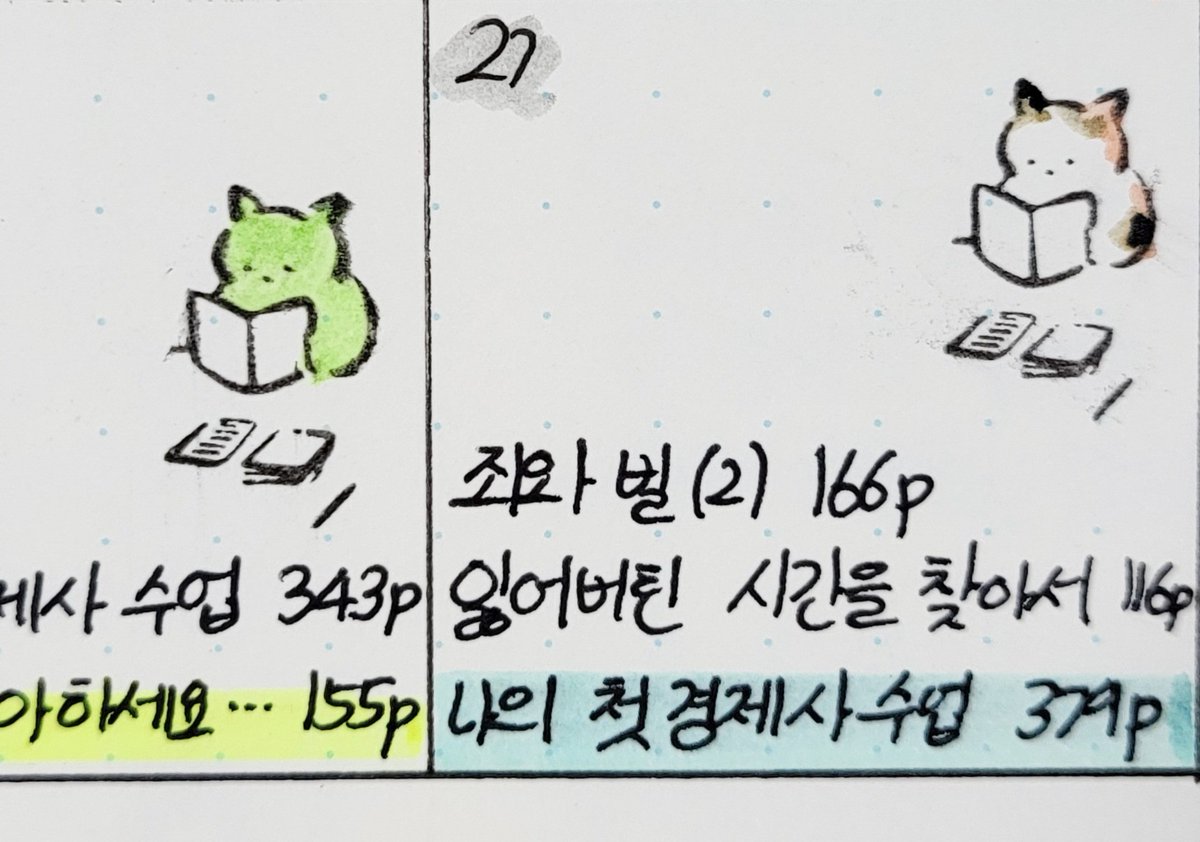 제사 수업 343p
아하세요… 155p
27
죄와 벌(2) 166p
잃어버린 시간을 찾아서 116p
나의 첫 경제사 수업 379p